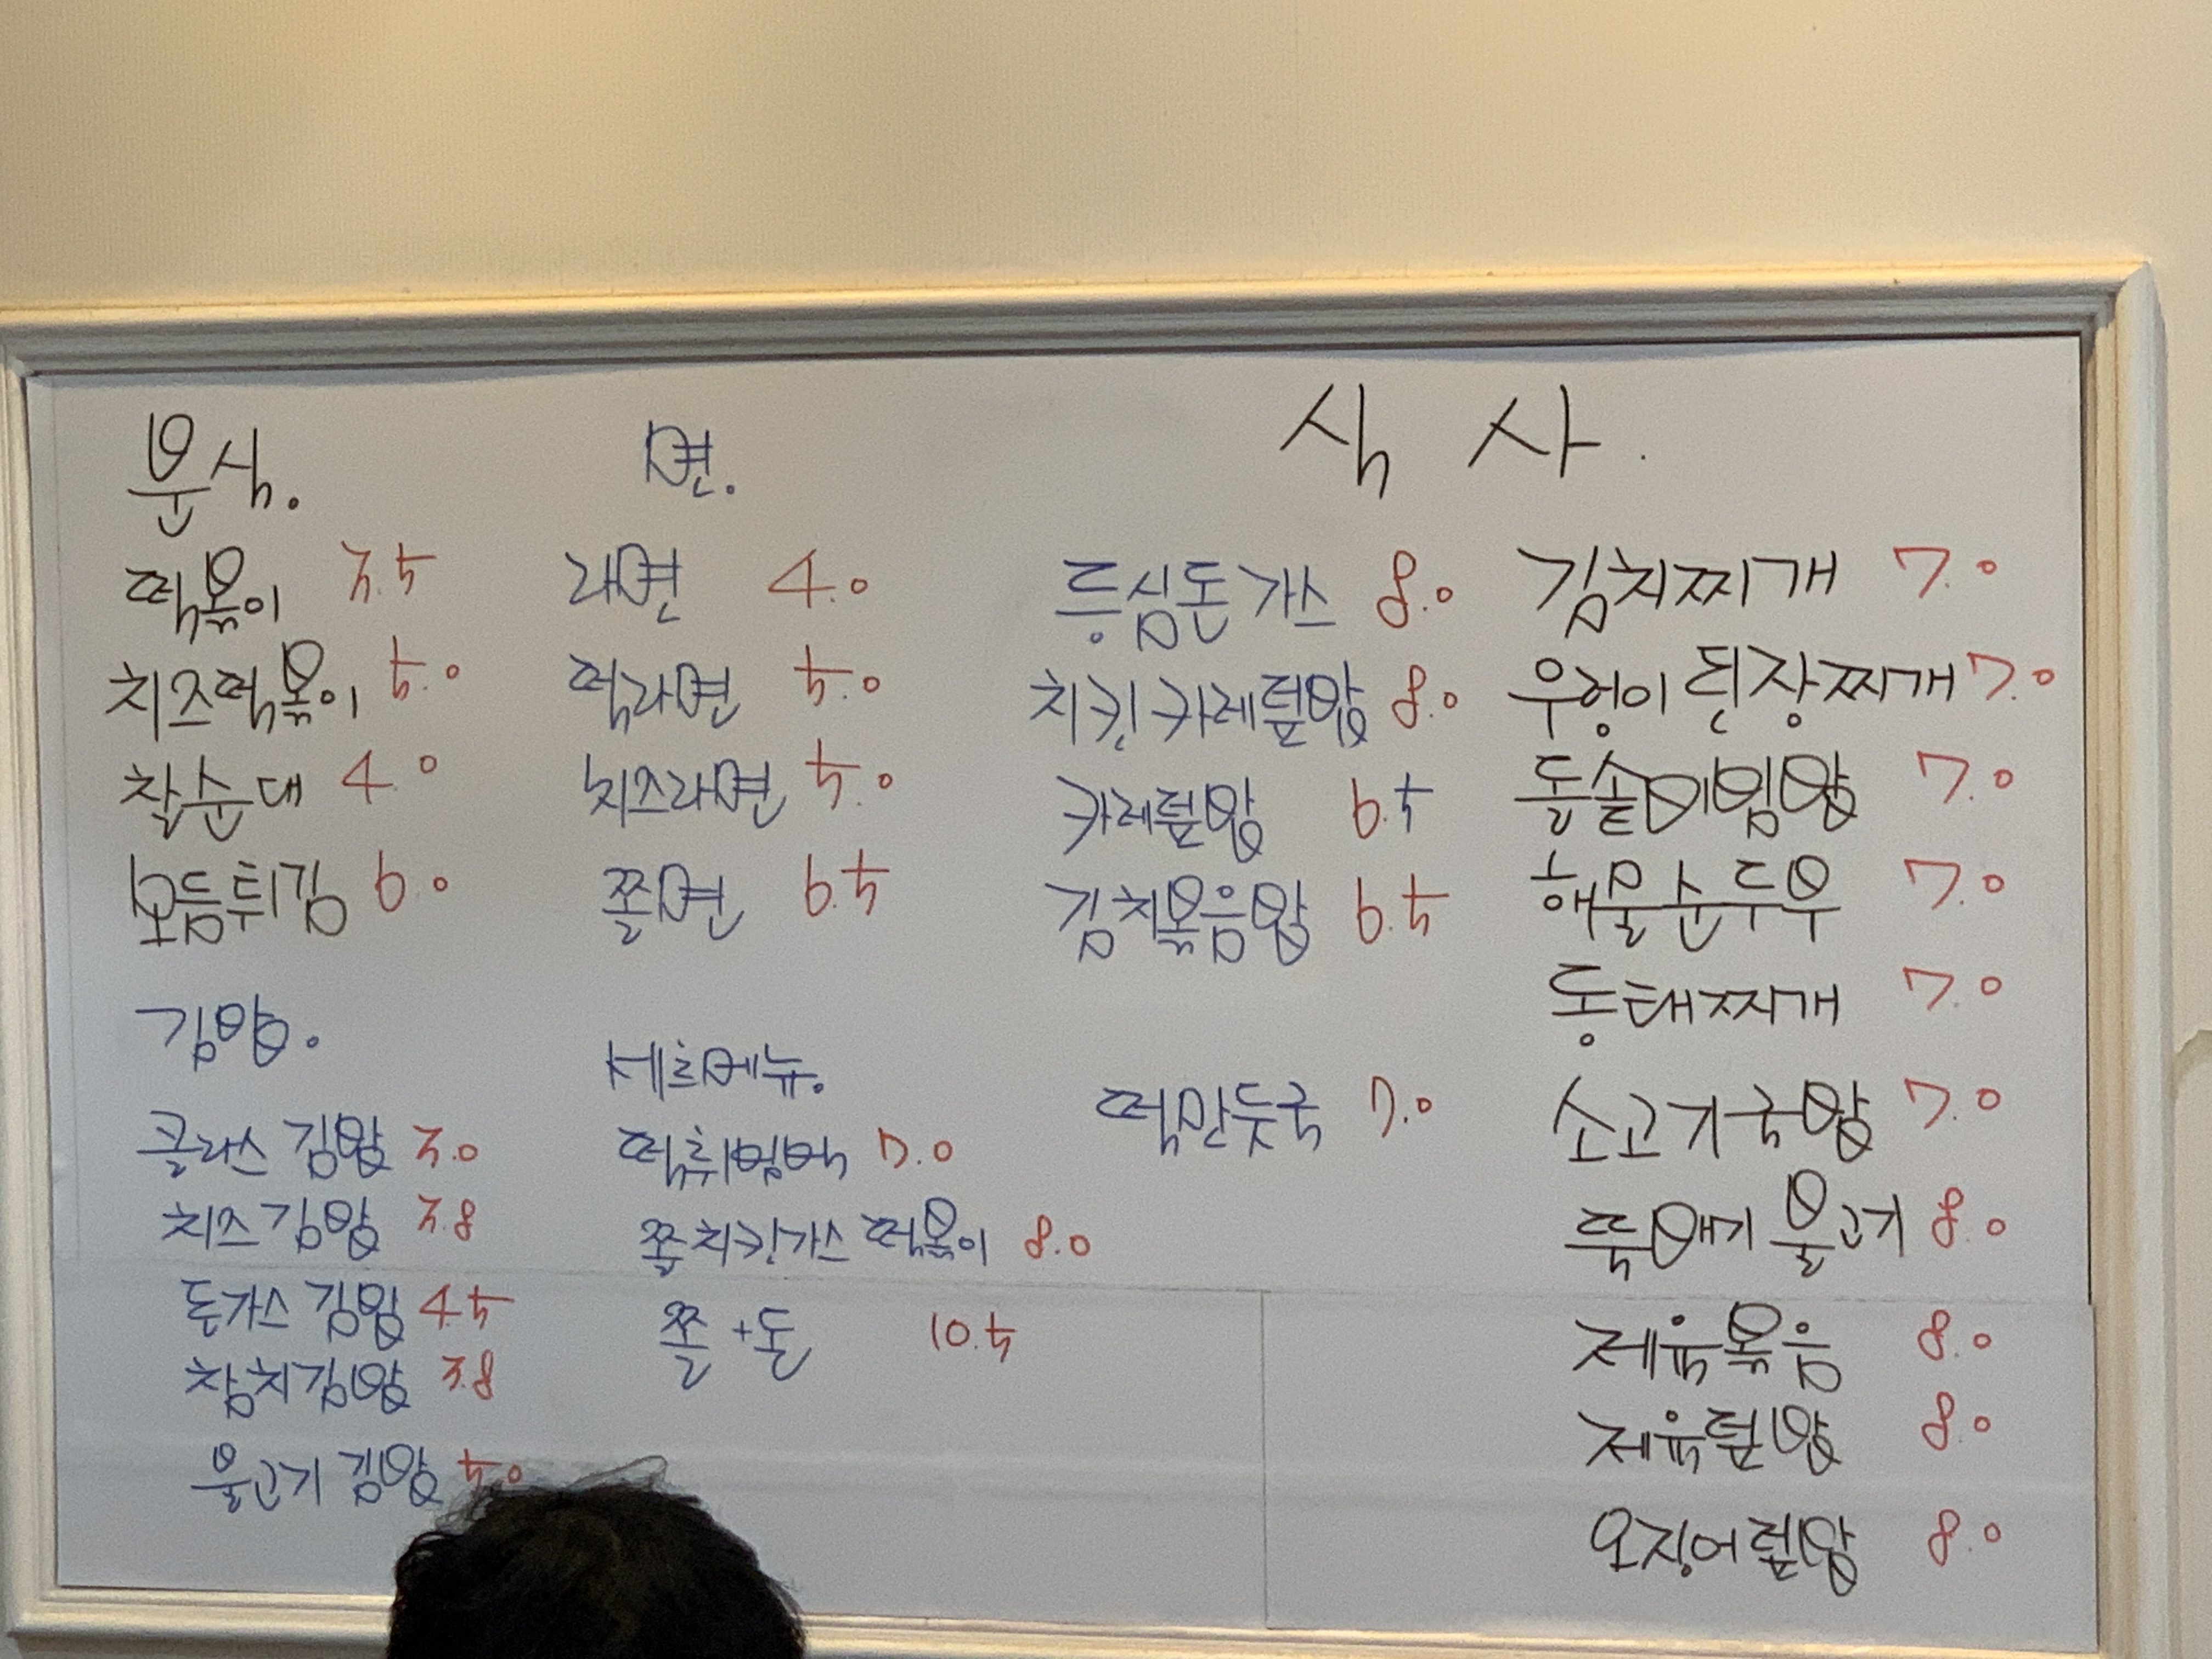 분식.
떡볶이 3.5
치즈떡볶이 5.0
찰순대 4.0
모듬튀김 6.0
김밥.
클라스 김밥 3.0
치즈 김밥 3.8
돈가스 김밥 4.5
참치김밥 3.8
불고기 김밥 5.0
면.
라면 4.0
떡라면 5.0
치즈라면 5.0
쫄면 6.5
세트메뉴.
떡튀범벅 7.0
쫄치킨가스 떡볶이 8.0
쫄+돈 10.5
식사.
등심돈가스 8.0
치킨카레덮밥 8.0
카레덮밥 6.5
김치볶음밥 6.5
떡만둣국 7.0
김치찌개 7.0
우렁이 된장찌개 7.0
돌솥비빔밥 7.0
해물순두부 7.0
동태찌개 7.0
소고기국밥 7.0
뚝배기 불고기 8.0
제육볶음 8.0
제육덮밥 8.0
오징어덮밥 8.0